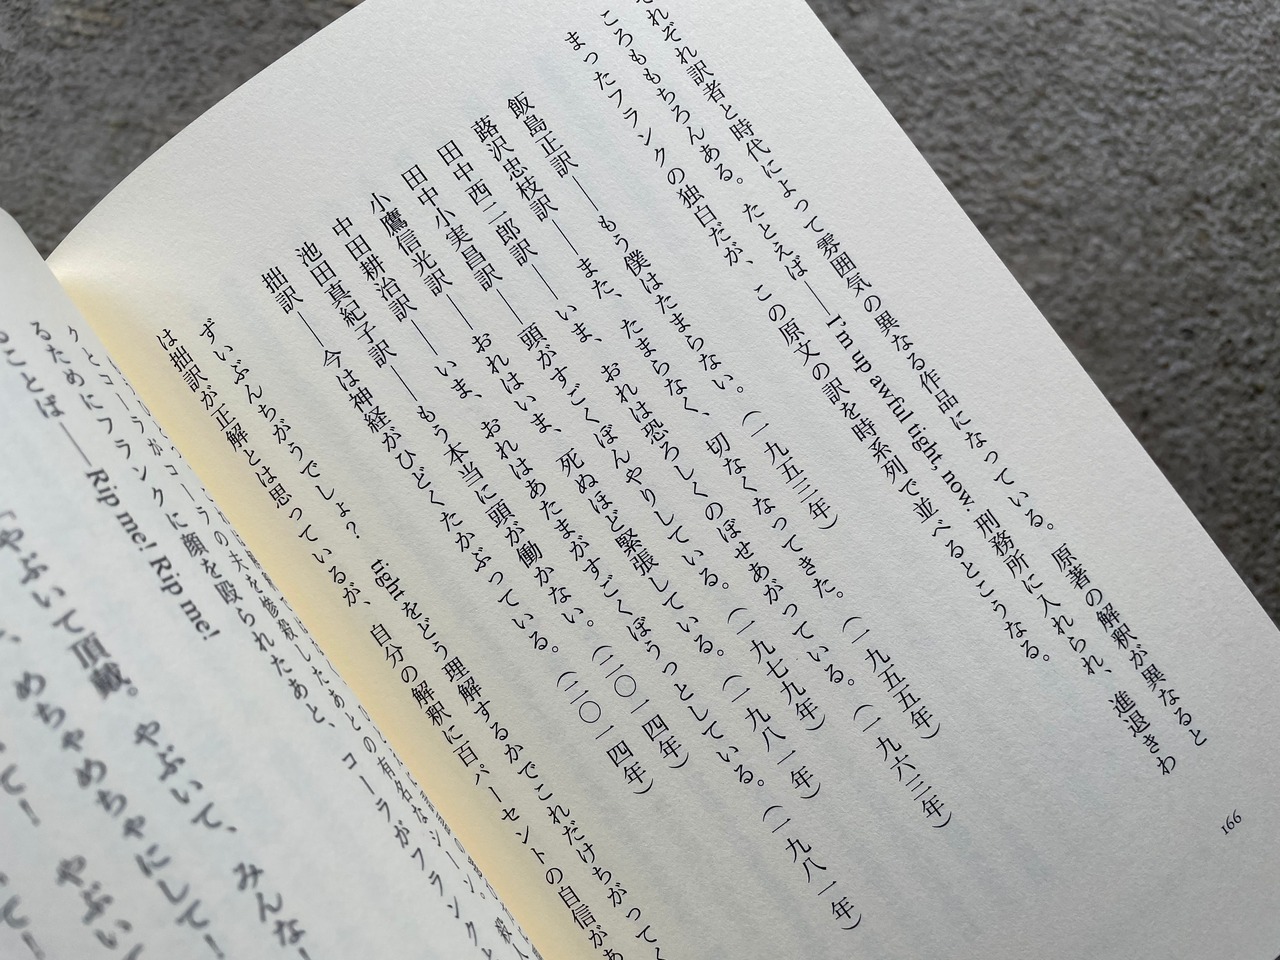 れぞれ訳者と時代によって雰囲気の異なる作品になっている。原著の解釈が異なると
ころももちろんある。たとえば——I'm up awful tight, now. 刑務所に入れられ、進退きわ
まったフランクの独白だが、この原文の訳を時系列で並べるとこうなる。
飯島正訳——もう僕はたまらない。(一九五三年)
蕗沢忠枝訳——また、たまらなく、切なくなってきた。(一九五五年)
田中西二郎訳——いま、おれは恐ろしくのぼせあがっている。(一九六三年)
田中小実昌訳——頭がすごくぼんやりしている。(一九七九年)
小鷹信光訳——おれはいま、死ぬほど緊張している。(一九八一年)
中田耕治訳——いま、おれはあたまがすごくぼうっとしている。(一九八一年)
池田真紀子訳——もう本当に頭が働かない。(二〇一四年)
拙訳——今は神経がひどくたかぶっている。(二〇一四年)
ずいぶんちがうでしょ？ tightをどう理解するかでこれだけちがってく
は拙訳が正解とは思っているが、自分の解釈に百パーセントの自信があ
166
クとコーラがコーラの夫を惨殺したあとの有名なシーン。殺人
るためにフランクに顔を殴られたあと、コーラがフランクと
ことば——Rip me! Rip me!
「やぶいて頂戴。やぶいて、みんな！
、めちゃめちゃにして！
て！ やぶいて